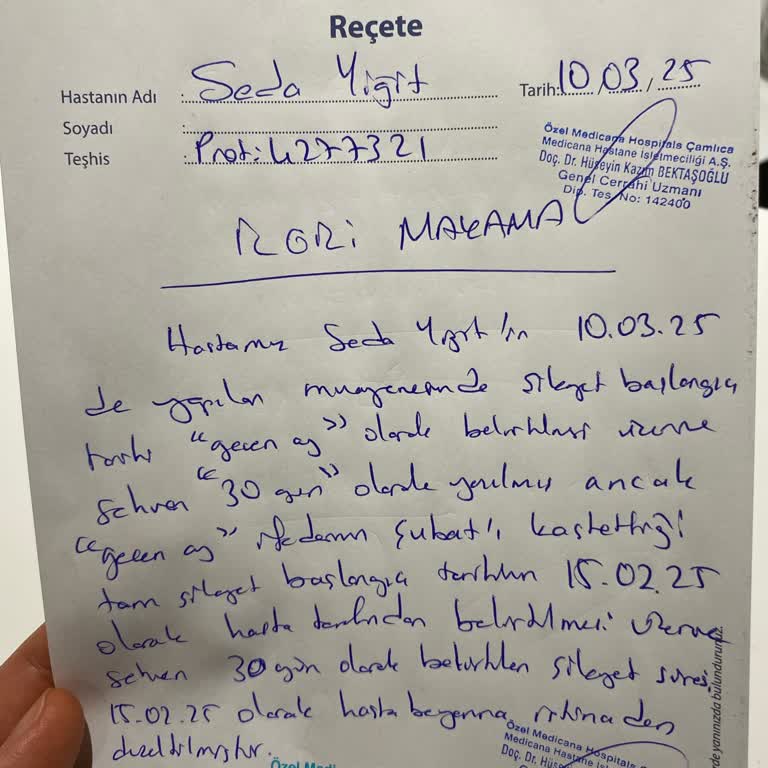 Reçete
Hastanın Adı : Seda Yiğit Tarih: 10/03/25
Soyadı :
Teşhis : Prot: 4277321
Özel Medicana Hospitals Çamlıca
Medicana Hastane İşletmeciliği A.Ş.
Doç. Dr. Hüseyin Kazım BEKTAŞOĞLU
Genel Cerrahi Uzmanı
Dip. Tes. No: 142400
MAKAMA
Hastamız Seda Yiğit'in 10.03.25
de yapılan muayenesinde şikayet başlangıç
tarihi "geçen ay" olarak belirtilmesi üzerine
sehven "30 gün" olarak yazılmış ancak
"geçen ay" ifadenin Şubat'ı kastettiği
tam şikayet başlangıç tarihinin 15.02.25
olarak hasta tarafından belirtilmesi üzerine
sehven 30 gün olarak belirtilen şikayet süresi
15.02.25 olarak hasta beyanına istinaden
düzeltilmiştir.
Özel Medicana Hospitals
Medicana Hastane İşle
Doç. Dr. Hüse
Özel Medi
rde yanınızda bulundurunuz.